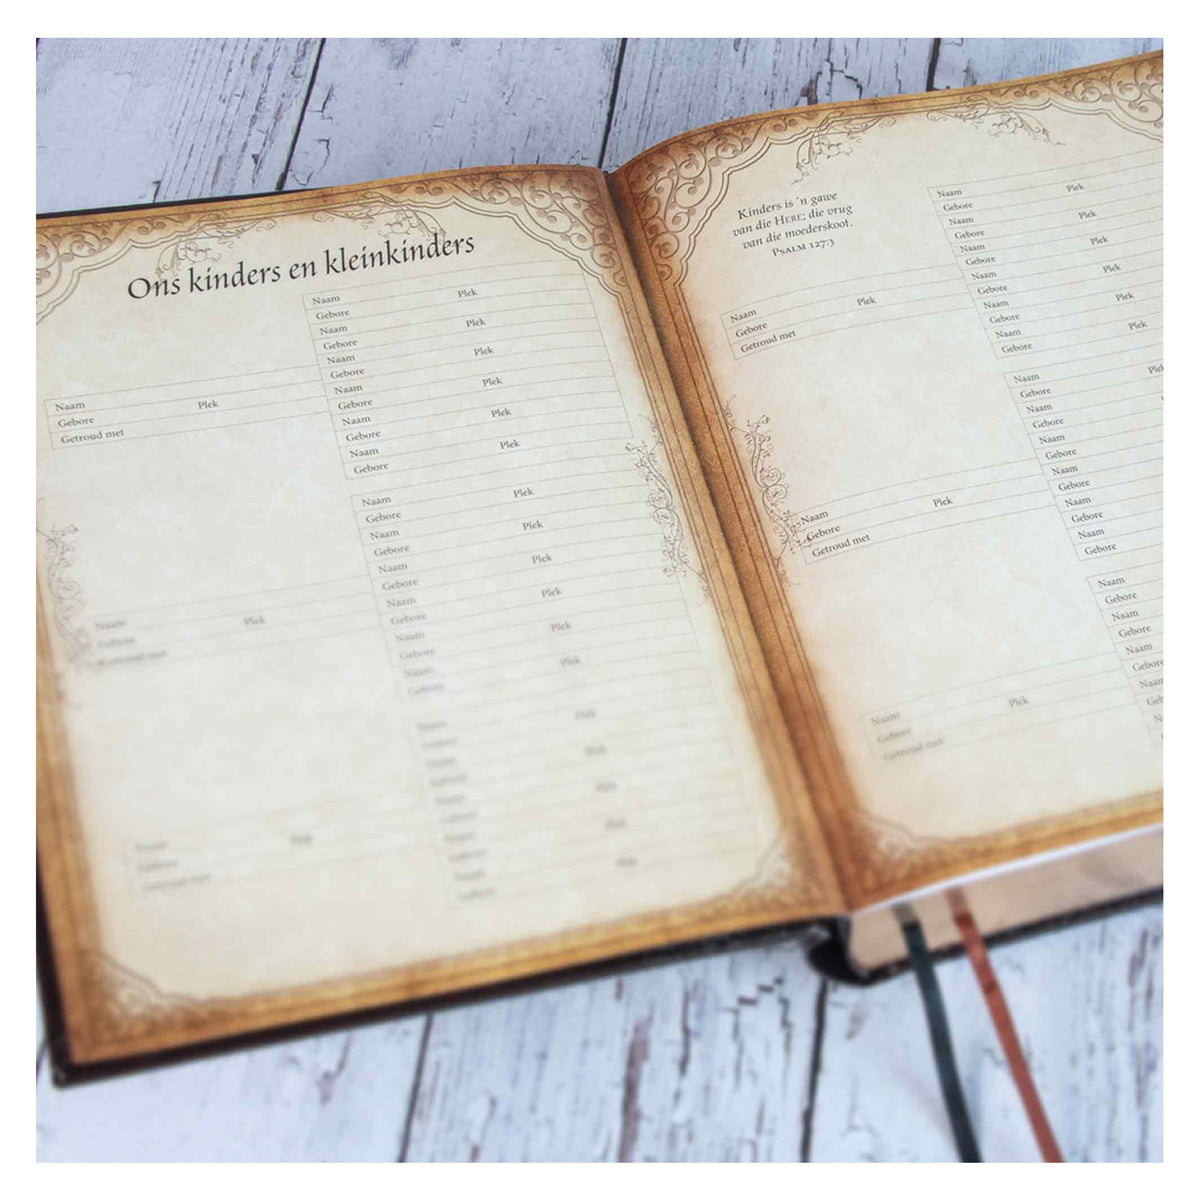 Ons kinders en kleinkinders
Naam Plek
Gebore
Getroud met
Naam Plek
Gebore
Naam Plek
Gebore
Naam Plek
Gebore
Naam Plek
Gebore
Naam Plek
Gebore
Naam Plek
Gebore
Naam Plek
Gebore
Getroud met
Naam Plek
Gebore
Naam Plek
Gebore
Naam Plek
Gebore
Naam Plek
Gebore
Naam Plek
Gebore
Naam Plek
Gebore
Kinders is 'n gawe
van die HERE; die vrug
van die moederskoot.
PSALM 127:3
Naam Plek
Gebore
Getroud met
Naam Plek
Gebore
Naam Plek
Gebore
Naam Plek
Gebore
Naam Plek
Gebore
Naam Plek
Gebore
Naam Plek
Gebore
Naam Plek
Gebore
Getroud met
Naam Plek
Gebore
Naam
Gebore
Naam
Gebore
Naam
Gebore
Naam
Gebore
Naam
Gebore
Naam Plek
Gebore
Getroud met
Naam
Gebore
Naam
Gebore
Naam
Gebore
Naam